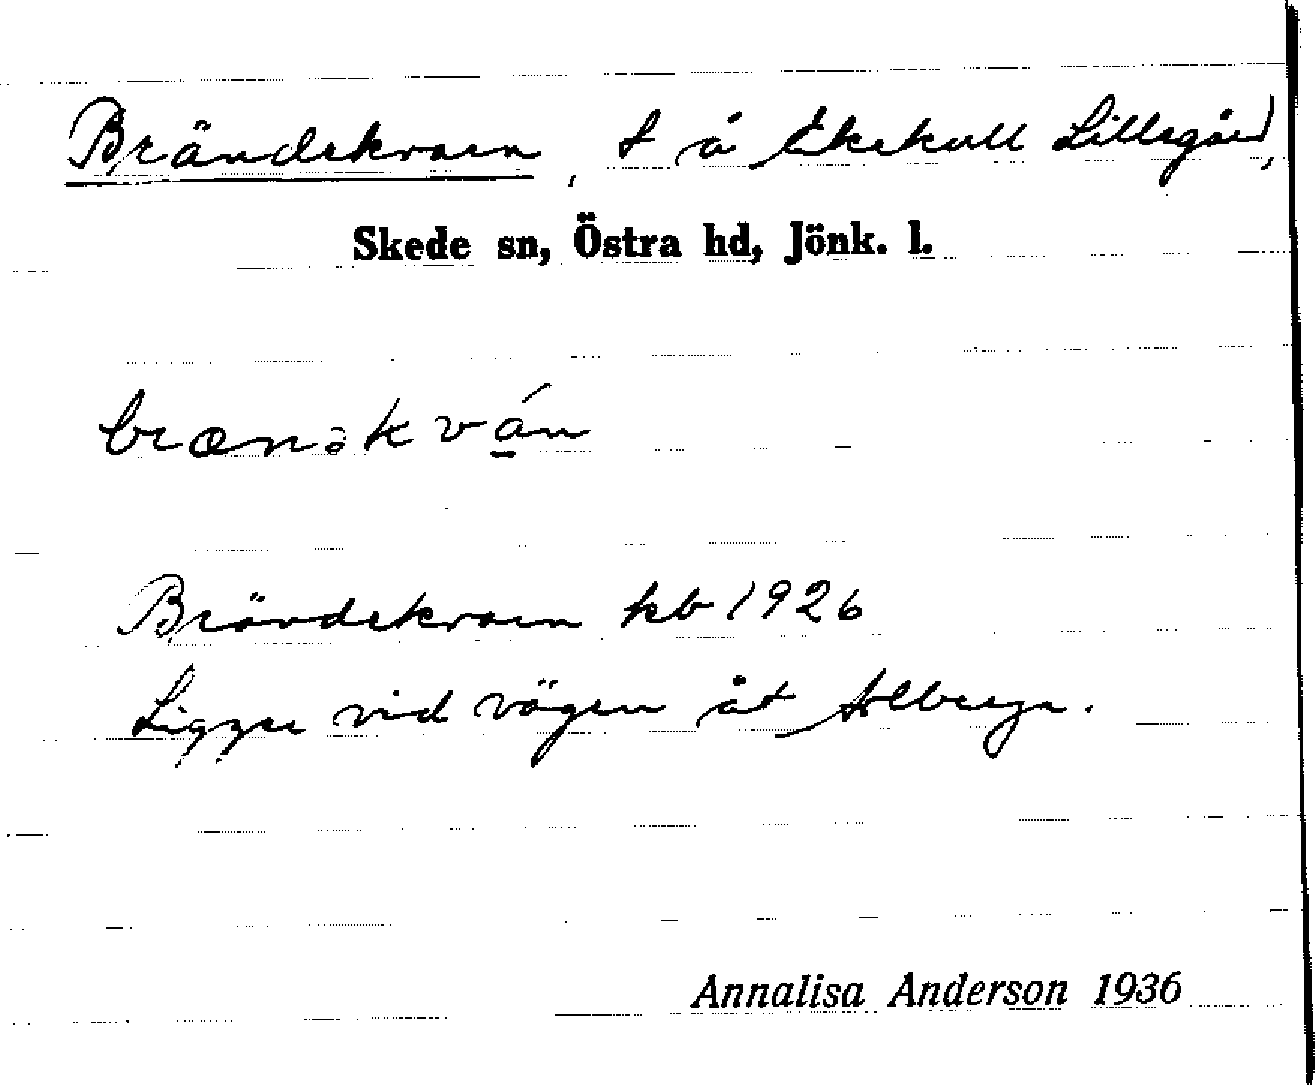 Brändekvarn, t å Ekekull Lillegård,
Skede sn, Östra hd, Jönk. l.
brænəkván
Brändekvarn kb 1926
Ligger vid vägen åt
Annalisa Anderson 1936